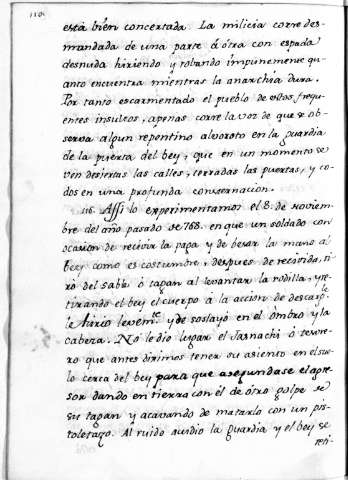 110.
està bien concertada. La milicia corre des-
mandada de una parte à òtra con espada
desnuda hiriendo y robando impunemente qu-
anto encuentra mientras la anarchia dura.
Por tanto escarmentado el pueblo de estos frequ-
entes insultos, apenas corre la voz de que se ob-
serva algun repentino alvoroto en la guardia
de la puerta del bey, que en un momento se
ven desiertas las calles, cerradas las puertas, y to-
dos en una profunda consternacion.
116. Assi lo experimentamos el 8. de noviem-
bre del año pasado de 768. en que un soldado con
ocasion de recivir la paga y de besar la mano al
bey como es costumbre, despues de recivida, ti-
rò del sable ò tagan al levantar la rodilla, y re-
tirando el bey el cuerpo à la accion de descargar-
le hirio levemte. y de soslayo en el ombro y la
cabeza. No le dio lugar el Jasnachi ò tesore-
ro que antes diximos tener su asiento en el sue-
lo cerca del bey para que asegundase el agre-
sor dando en tierra con èl de òtro golpe de
su tagan y acavando de matarlo con un pis-
toletazo. Al ruido acudio la guardia y el bey se
reti-